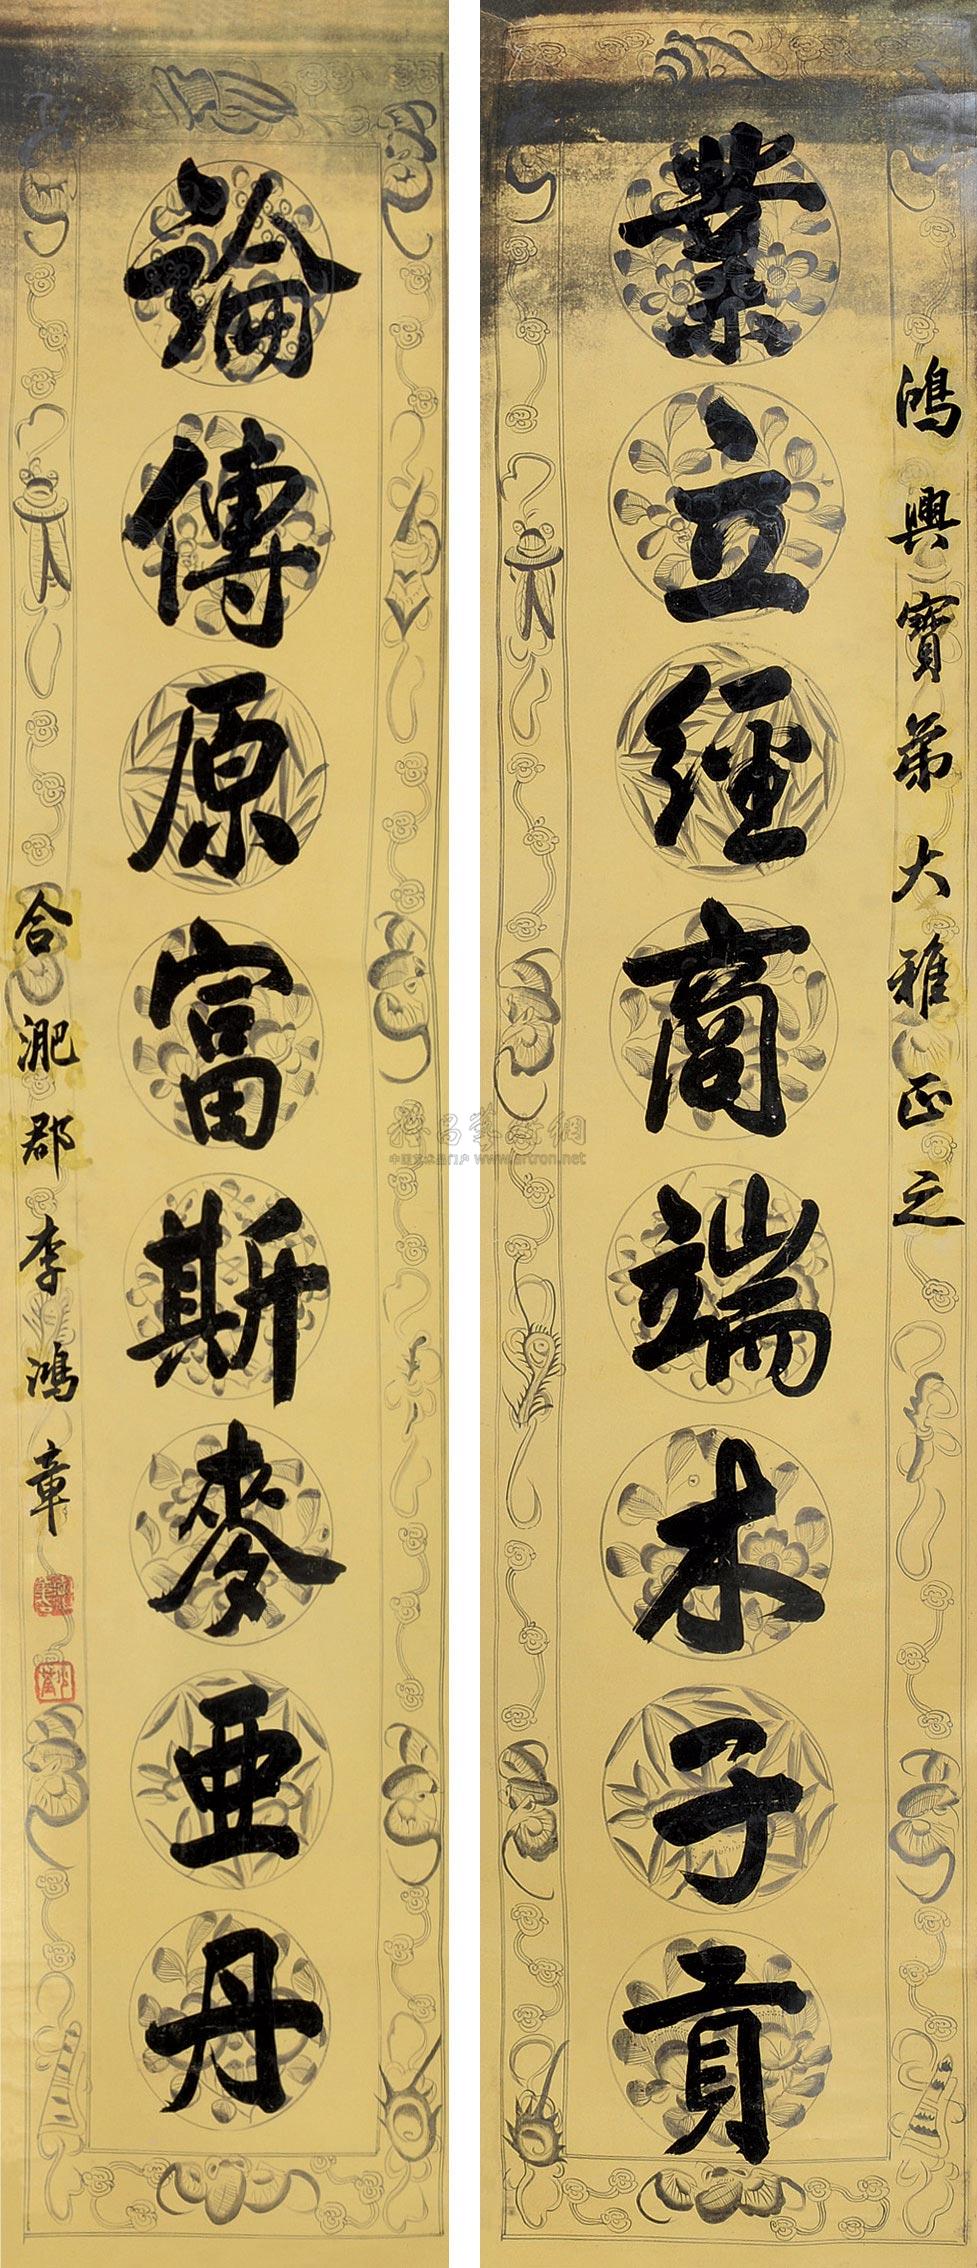 鴻興寶弟大雅正之
業立經商端木子貢
論傳原富斯麥亞丹
合淝郡李鴻章
雅昌藝術網
中国艺术品门户 www.artron.net